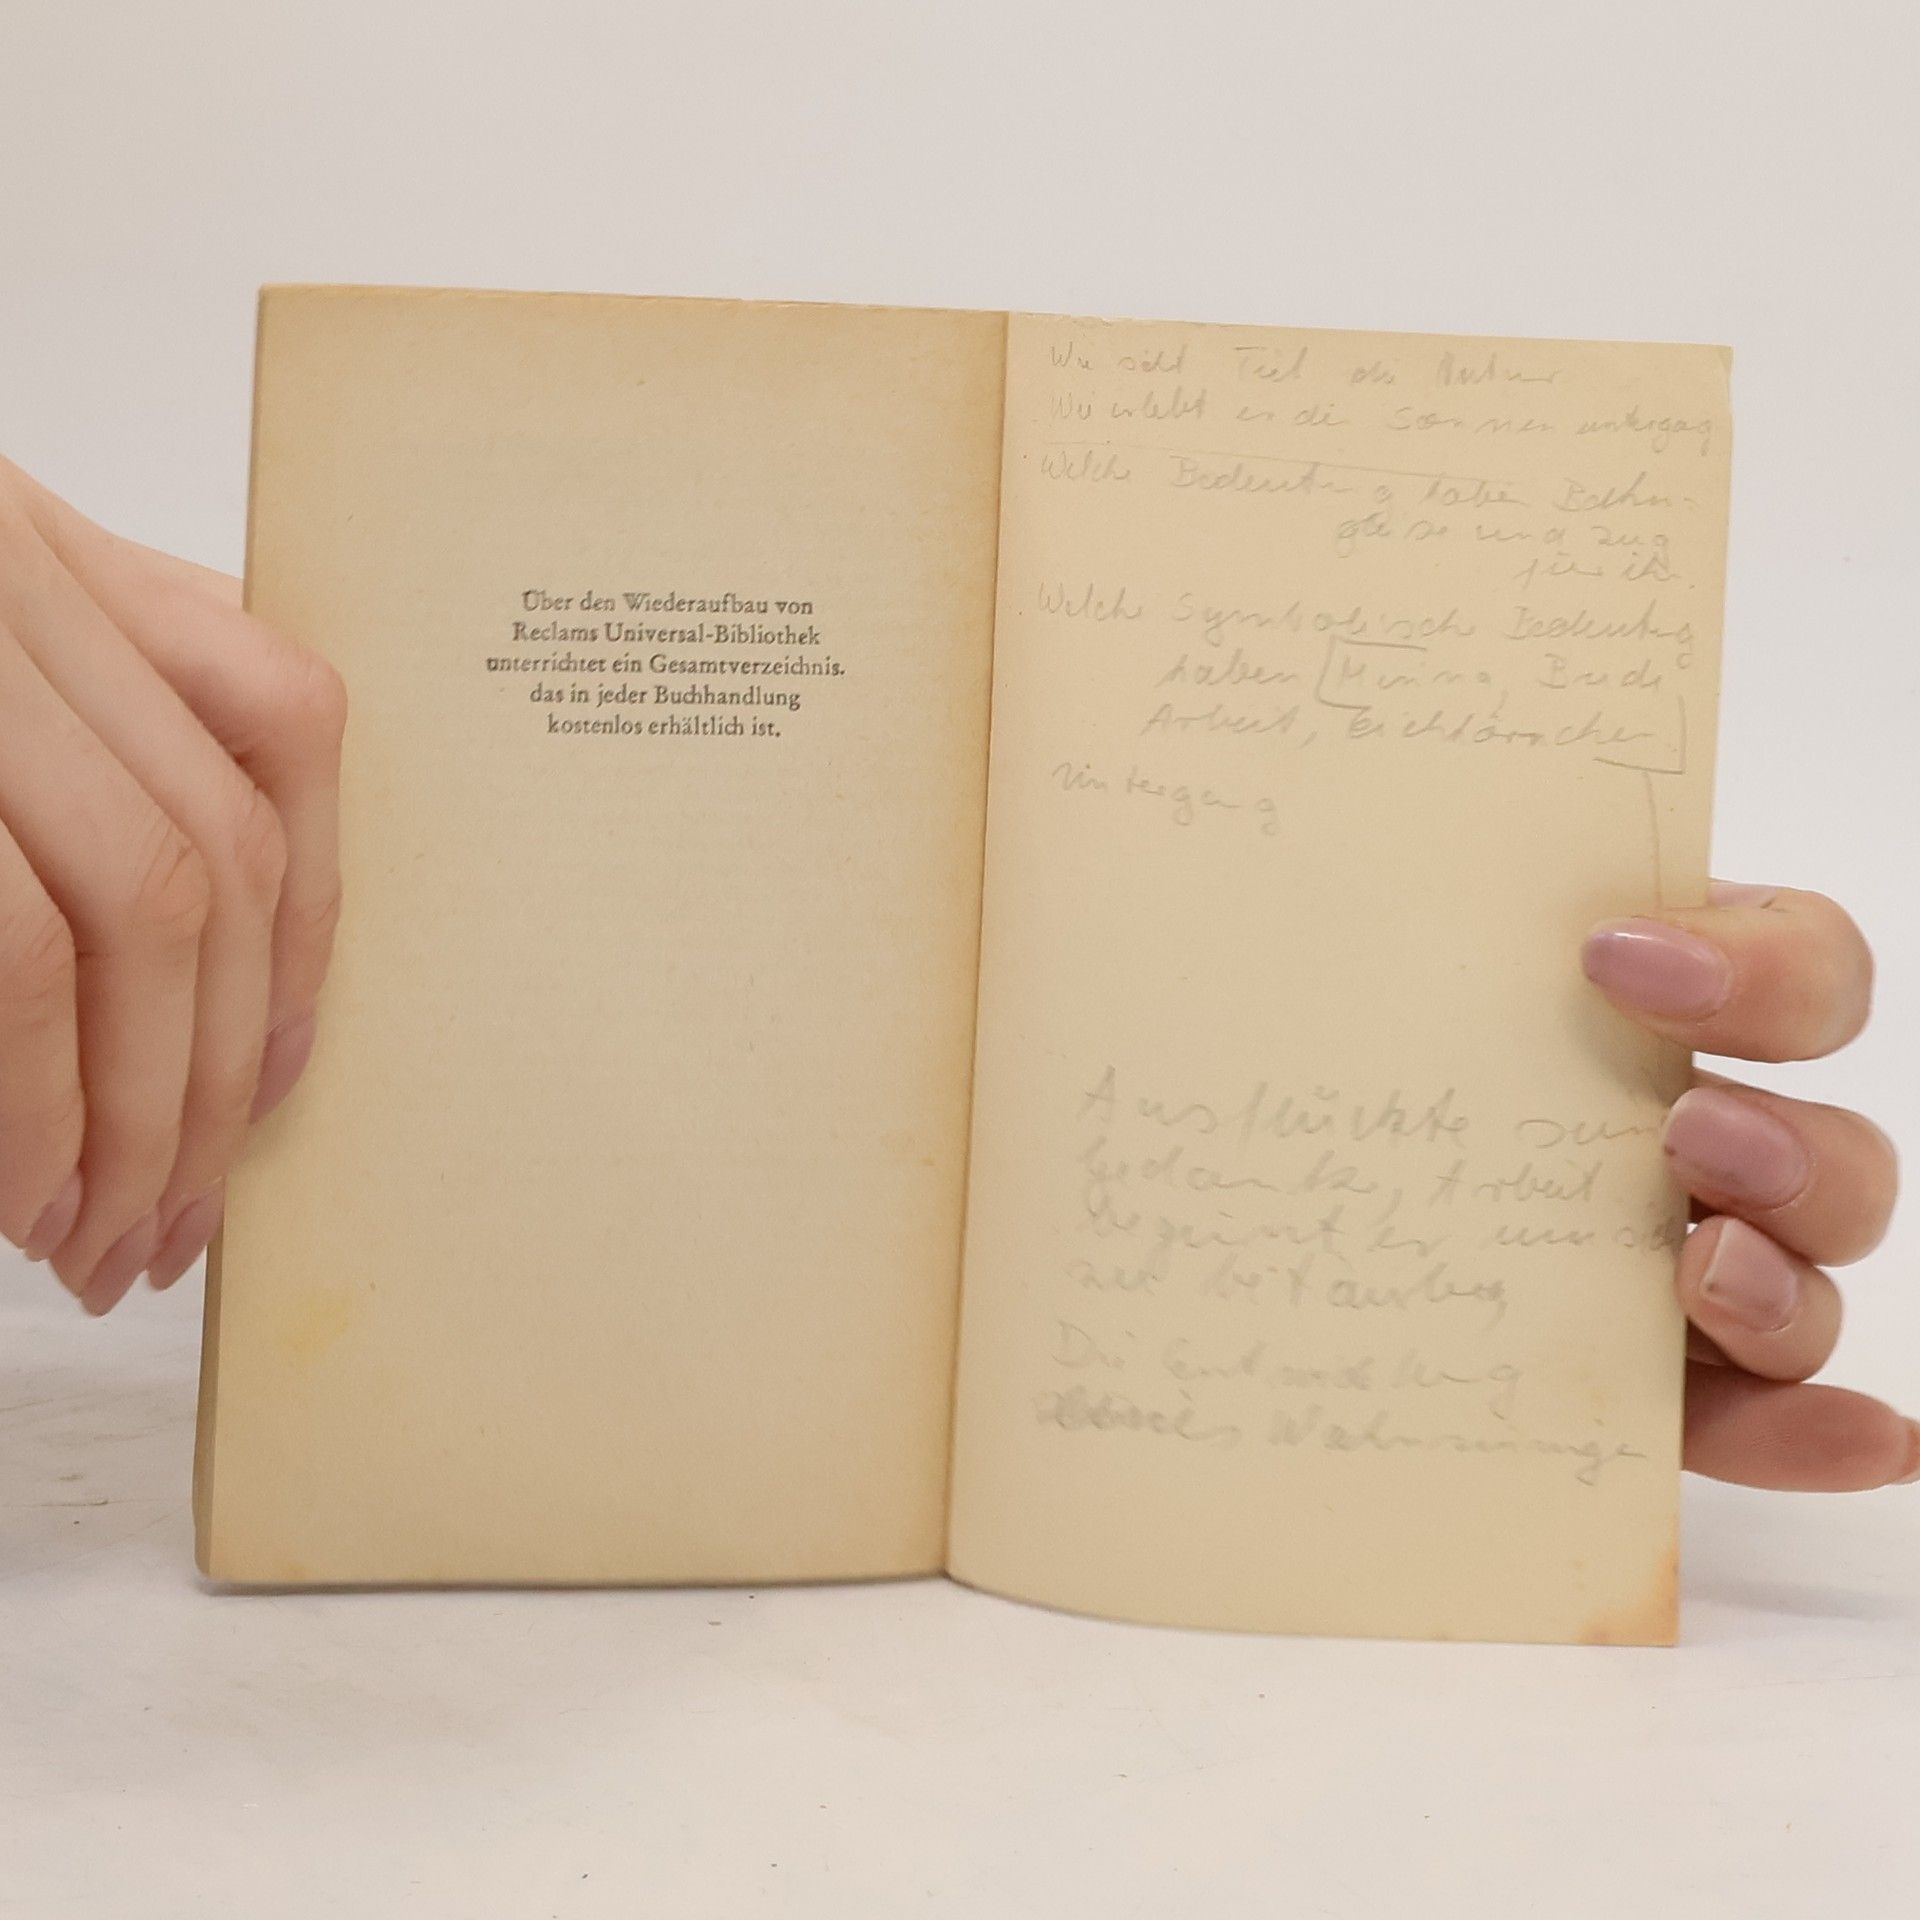 Über den Wiederaufbau von
Reclams Universal-Bibliothek
unterrichtet ein Gesamtverzeichnis.
das in jeder Buchhandlung
kostenlos erhältlich ist.
Wie sieht Tiel die Natur
Wie erlebt er die Sonnenuntergag
Welche Bedeutung haben Bahn-
gleise und Zug
für ihn.
Welche Symbolische Bedeutung
haben Minna, Brude
Arbeit, Eichhörnchen
Untergang
Ausflückte
Gedanke, Arbeit
beginnt er um sich
zu
Die Entwicklung
Wahnsinnige